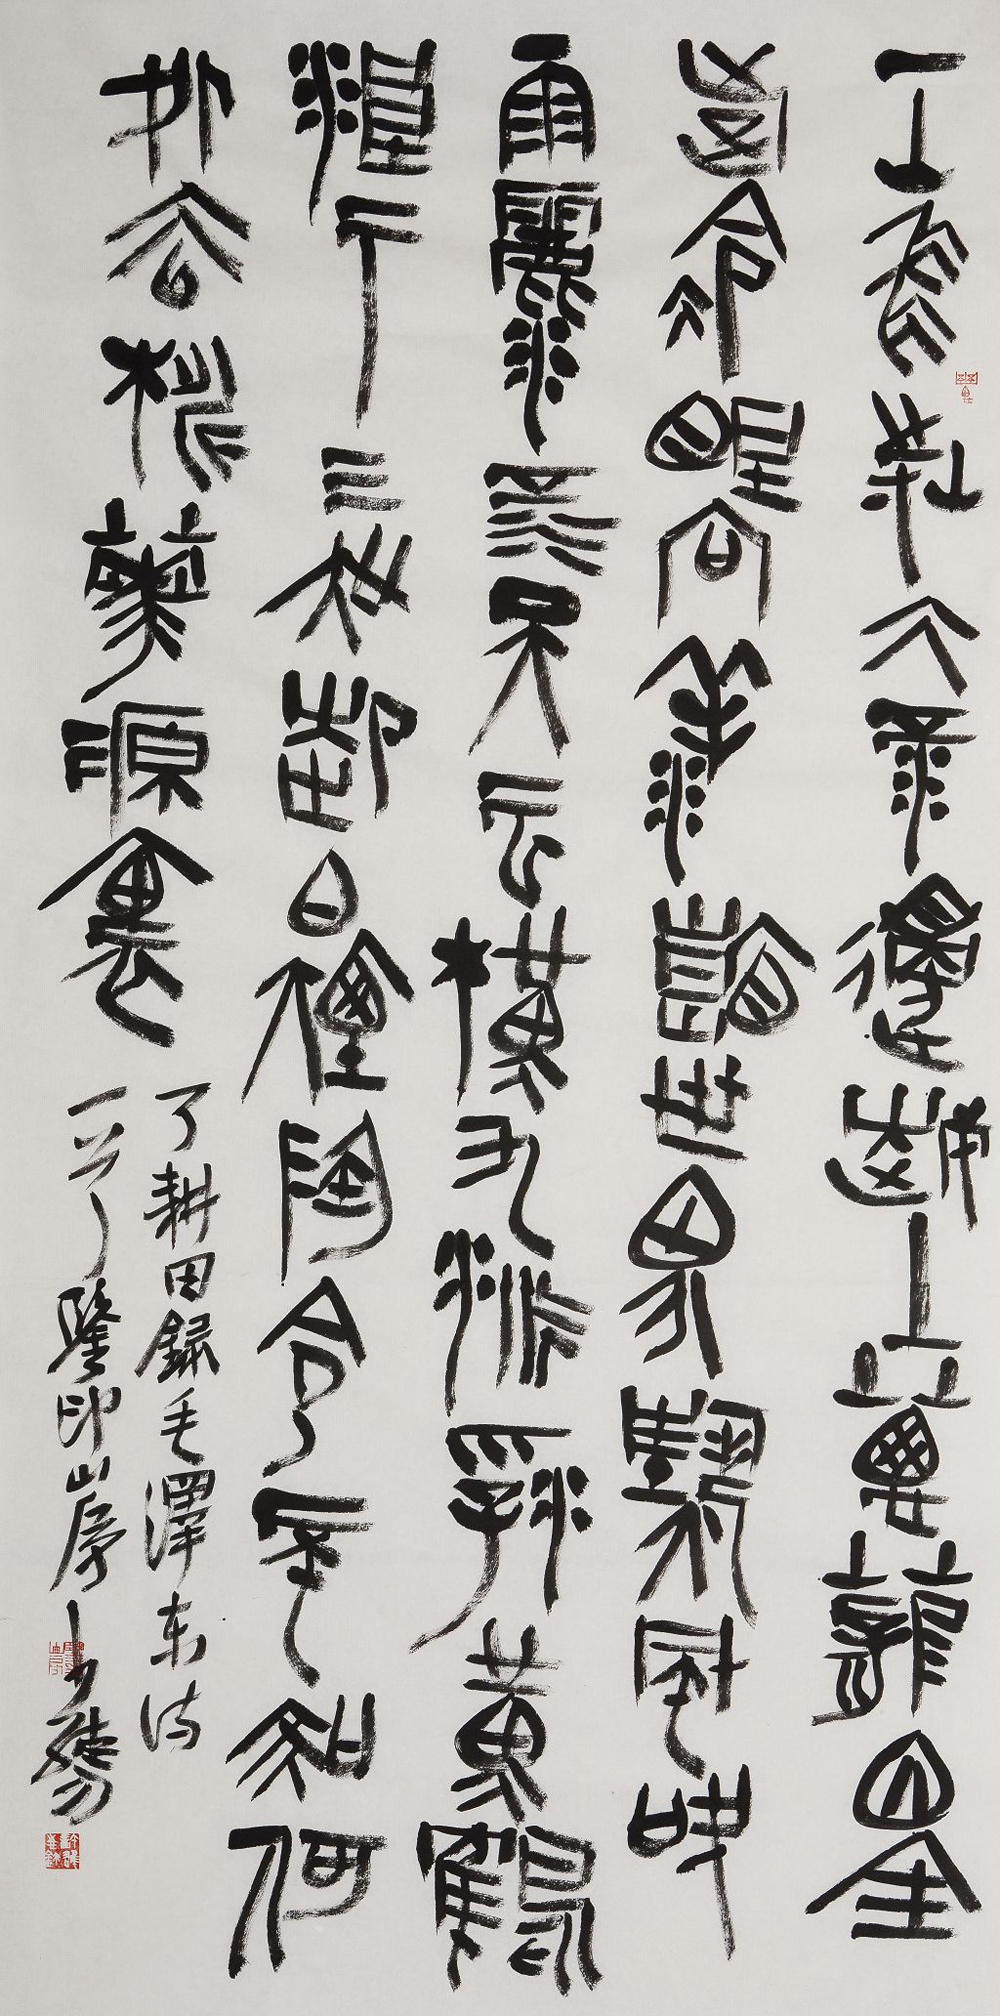 一山飛峙大江邊躍上葱蘢四百
旋冷眼向洋看世界熱風吹
雨灑江天雲橫九派浮黃鶴
浪下三吳起白煙陶令不知何
處去桃花源裏
可耕田録毛澤東詩
一首鑒印山房